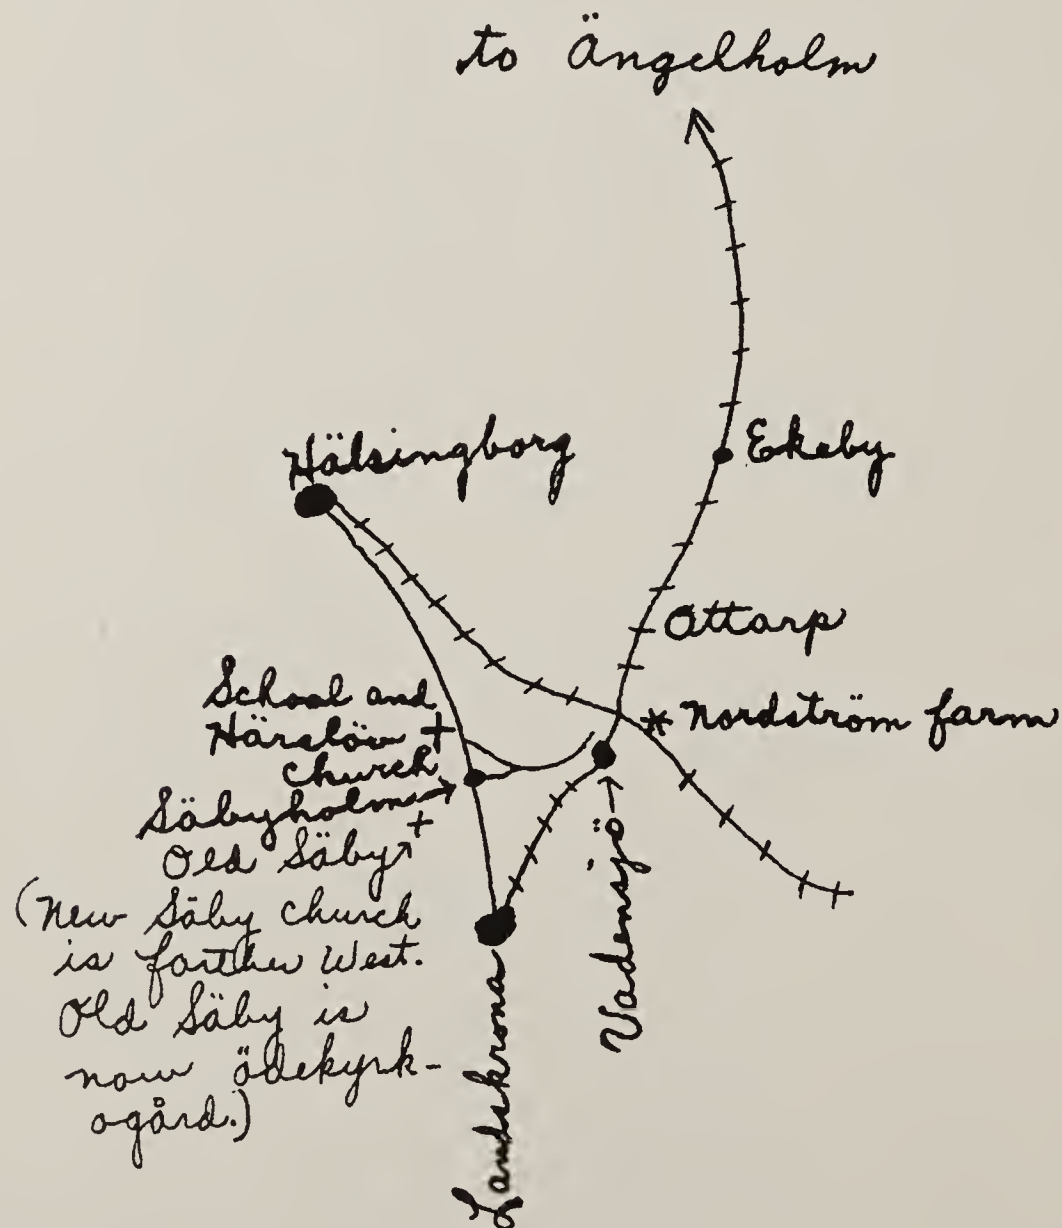 to Ängelholm
Ekeby
Hälsingborg
Ottarp
School and
Härslöv
church
Nordström farm
Säbyholm
Old Säby
(New Säby church
is farther West.
Old Säby is
now ödekyrk-
ogård.)
Vadensjö
Landskrona